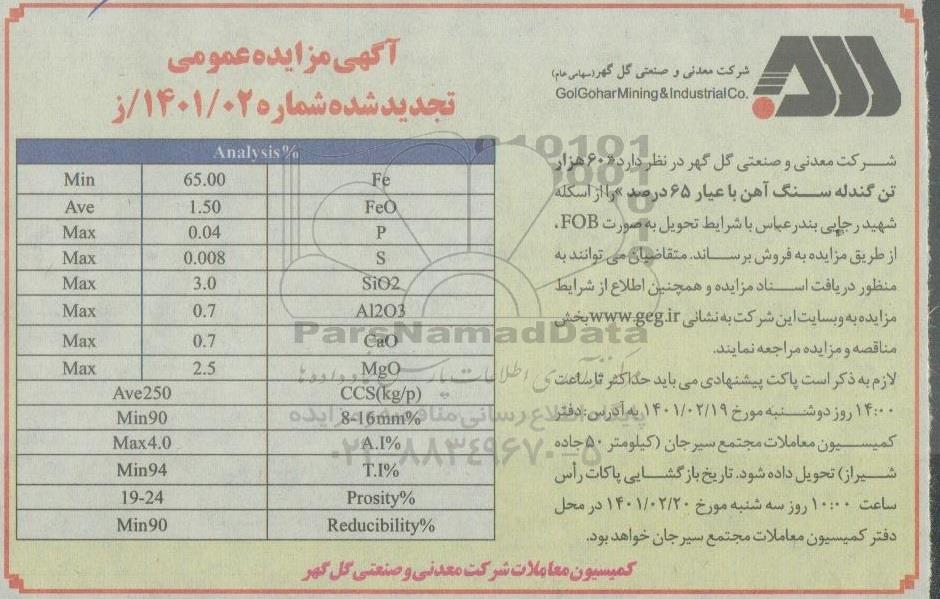 آگهی مزایده عمومی
تجدید شده شماره ۱۴۰۱/۰۲/ز
شرکت معدنی و صنعتی گل گهر (سهامی عام)
GolGoharMining&IndustrialCo.
شرکت معدنی و صنعتی گل گهر در نظر دارد «۶۰ هزار
تن گندله سنگ آهن با عیار ۶۵ درصد» را از اسکله
شهید رجایی بندرعباس با شرایط تحویل به صورت FOB،
از طریق مزایده به فروش برساند. متقاضیان می توانند به
منظور دریافت اسناد مزایده و همچنین اطلاع از شرایط
مزایده به وبسایت این شرکت به نشانی www.geg.ir بخش
مناقصه و مزایده مراجعه نمایند.
لازم به ذکر است پاکت پیشنهادی می باید حداکثر تا ساعت
۱۴:۰۰ روز دوشنبه مورخ ۱۴۰۱/۰۲/۱۹ به آدرس: دفتر
کمیسیون معاملات مجتمع سیرجان (کیلومتر ۵۰ جاده
شیراز) تحویل داده شود. تاریخ بازگشایی پاکات رأس
ساعت ۱۰:۰۰ روز سه شنبه مورخ ۱۴۰۱/۰۲/۲۰ در محل
دفتر کمیسیون معاملات مجتمع سیرجان خواهد بود.
Analysis%
Min 65.00 Fe
Ave 1.50 FeO
Max 0.04 P
Max 0.008 S
Max 3.0 SiO2
Max 0.7 Al2O3
Max 0.7 CaO
Max 2.5 MgO
Ave250 CCS(kg/p)
Min90 8-16mm%
Max4.0 A.I%
Min94 T.I%
19-24 Prosity%
Min90 Reducibility%
ParsNamadData
پایگاه اطلاع رسانی مناقصه و مزایده
۰۲۱-۸۸۳۴۹۶۷۰-۵
کمیسیون معاملات شرکت معدنی و صنعتی گل گهر